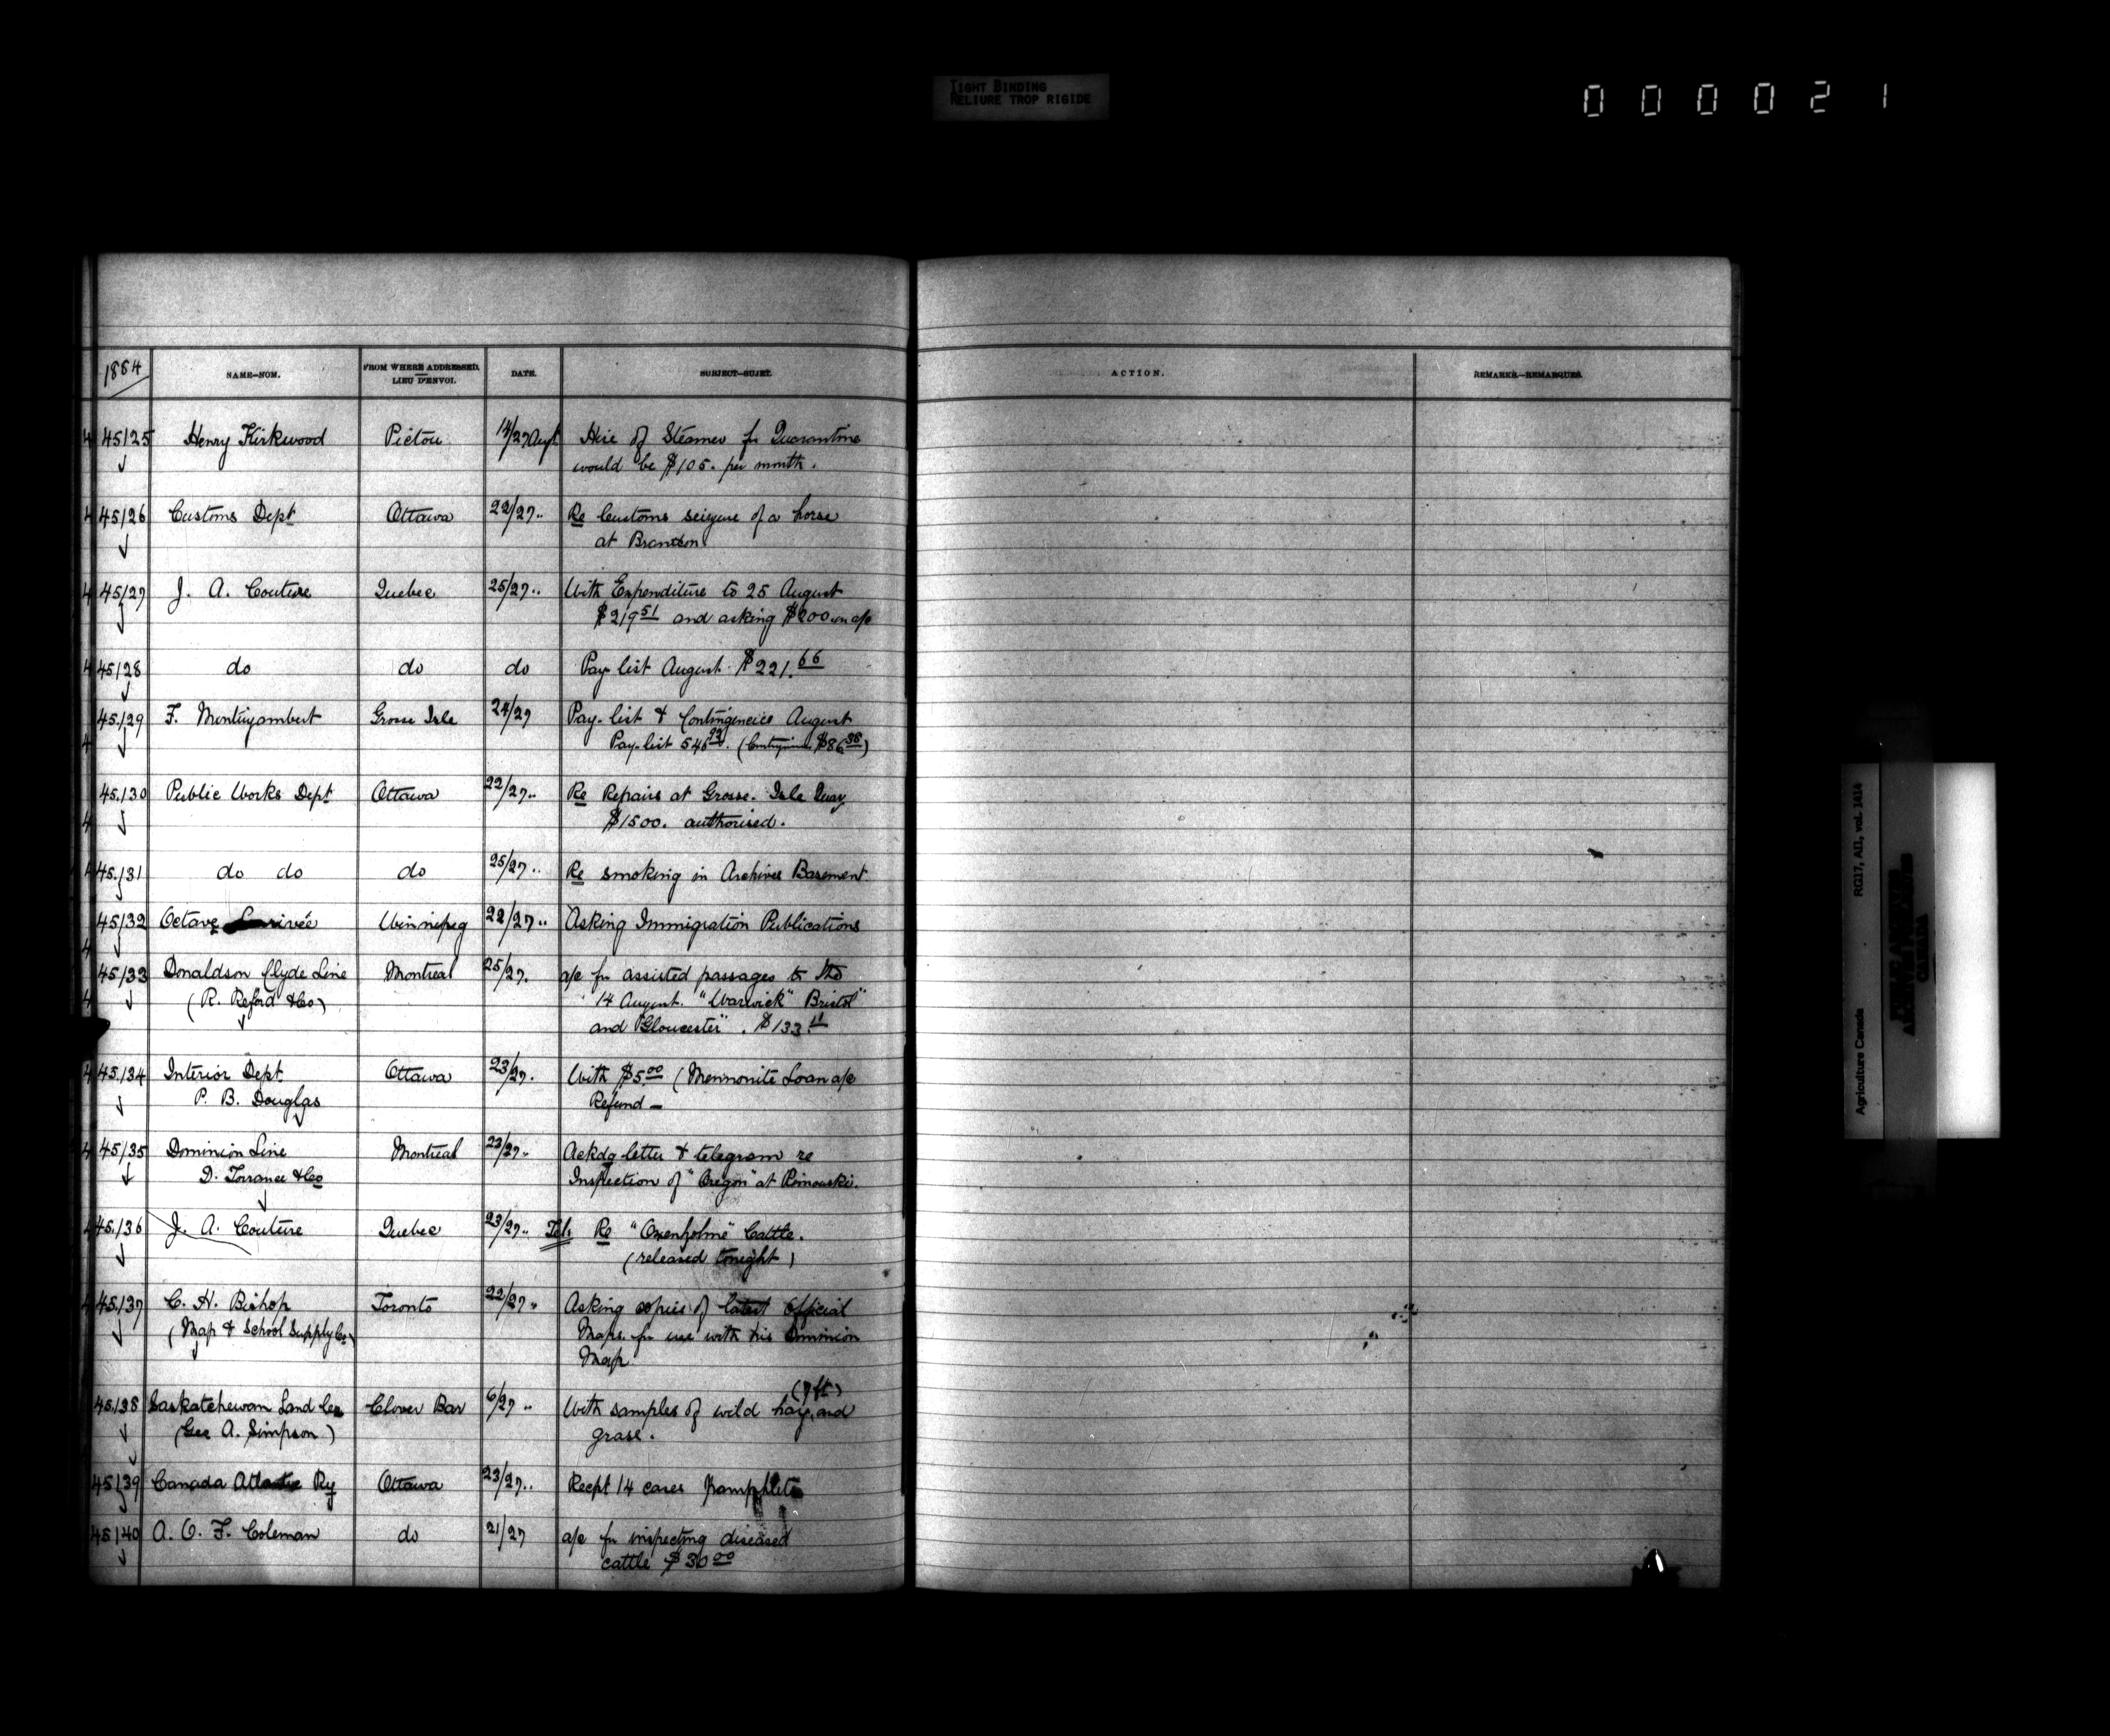 TIGHT BINDING
RELIURE TROP RIGIDE
0 0 0 0 2 1
1884
NAME—NOM.
FROM WHERE ADDRESSED.
LIEU D'ENVOI.
DATE.
SUBJECT—SUJET.
ACTION.
REMARKS.—REMARQUES.
45125 Henry Kirkwood Pictou 14/27 Augt Hire of Steamer for Quarantine
would be $105. per month.
45126 Customs Dept Ottawa 22/27 .. Re Customs seizure of a horse
at Brandon
45127 J. A. Couture Quebec 25/27 .. With Expenditure to 25 August
$219 51 and asking $200 on a/c
45128 do do do Pay list August $221.66
45129 F. Montizambert Grosse Isle 24/27 Pay-list & Contingencies August
Pay-list 546 (Contingencies $86 38)
45130 Public Works Dept Ottawa 22/27 .. Re Repairs at Grosse Isle Quay
$1500. authorised.
45131 do do do 25/27 .. Re smoking in Archives Basement
45132 Octave Larivée Winnipeg 22/27 .. Asking Immigration Publications
45133 Donaldson Clyde Line Montreal 25/27. a/c for assisted passages to the
(R. Reford & Co) 14 August. "Warwick" Bristol"
and "Gloucester". $133.11
45134 Interior Dept Ottawa 23/27. With $5.00 (Mennonite Loan a/c
P. B. Douglas Refund —
45135 Dominion Line Montreal 23/27 .. Ackdg letter & telegram re
D. Torrance & Co Inspection of "Oregon" at Rimouski.
45136 J. A. Couture Quebec 23/27 .. Tel. Re "Oxenholme" Cattle.
(released tonight)
45137 C. H. Bishop Toronto 22/27 .. Asking copies of latest Official
(Map & School Supply Co) Maps for use with his Dominion
Map
(7 ft)
45138 Saskatchewan Land Co Clover Bar 6/27 .. With samples of wild hay, and
(Geo A. Simpson) grass.
45139 Canada Atlantic Ry Ottawa 23/27 .. Recpt 14 cases Pamphlets
45140 A. O. F. Coleman do 21/27 a/c for inspecting diseased
cattle $30 00
Agriculture Canada RG17, AII, vol. 1414
CANADA